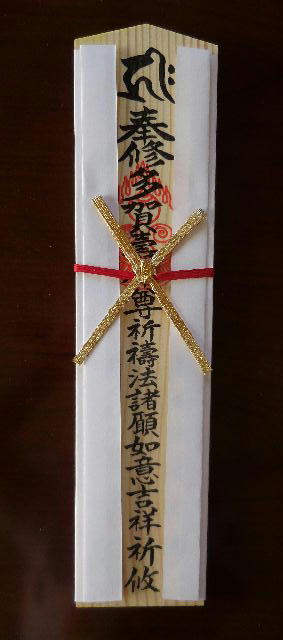 奉修多賀壽尊祈禱法諸願如意吉祥祈攸